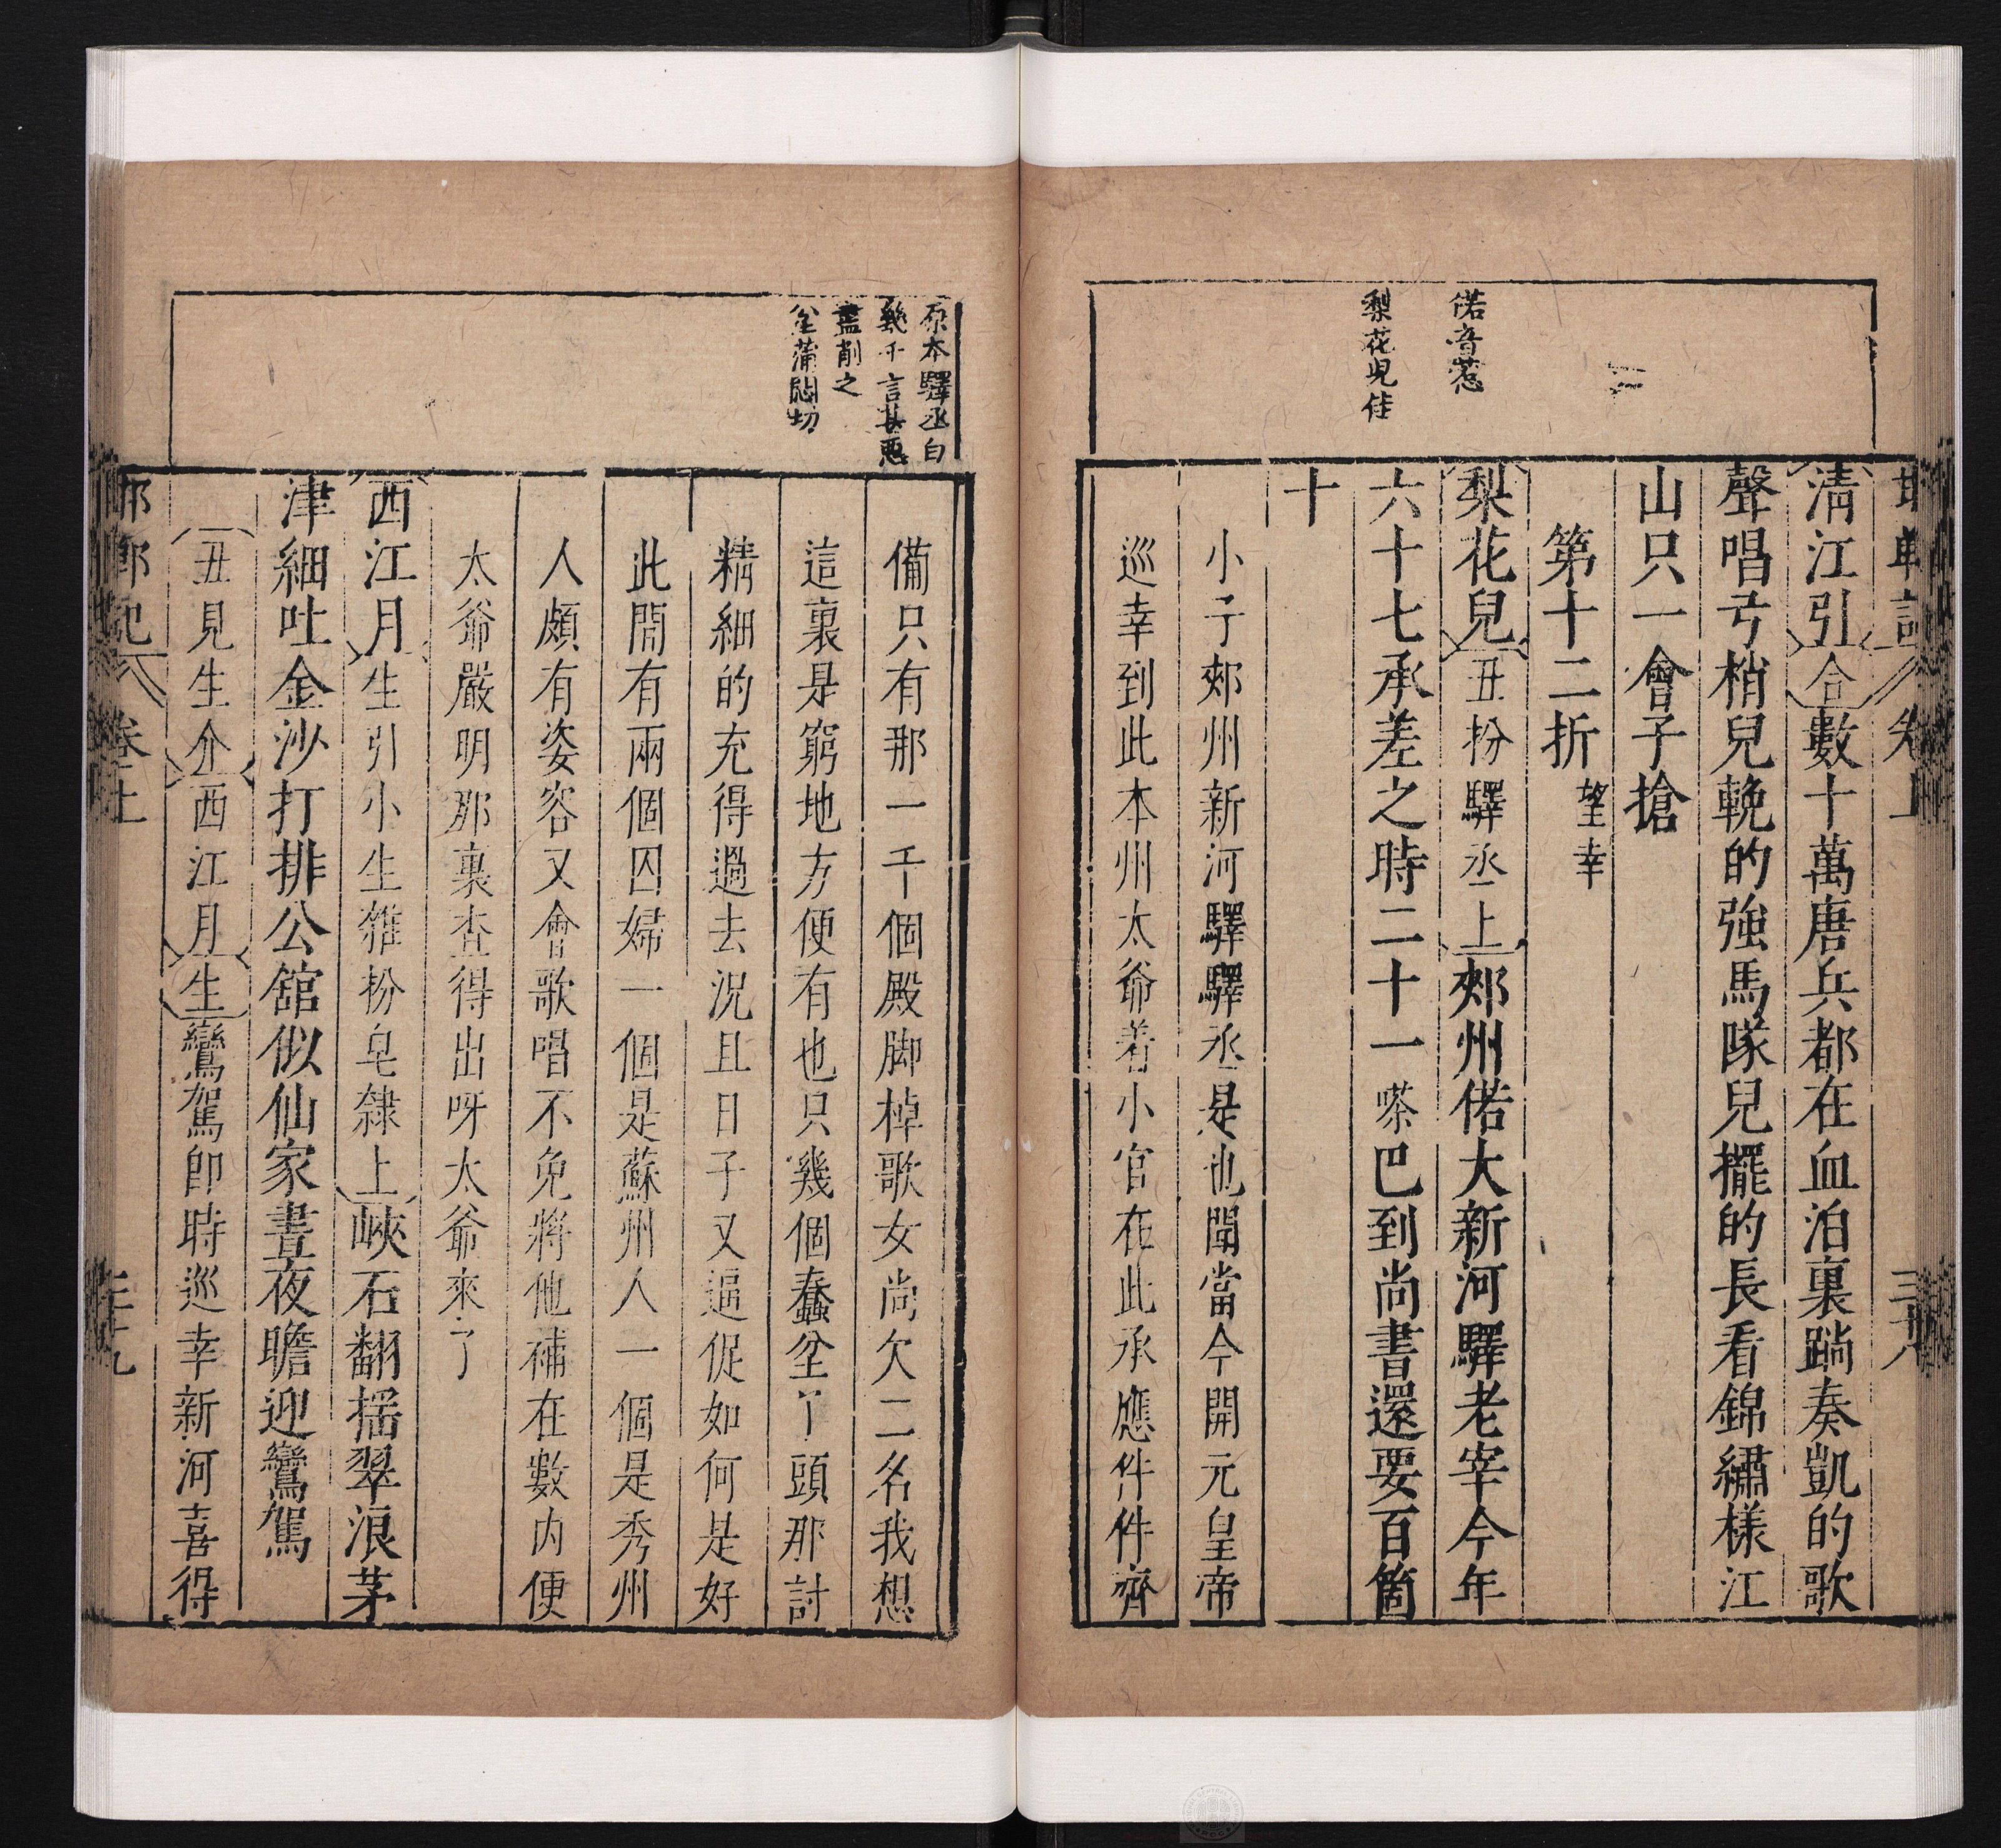 邯鄲記 卷上 三十八
偌音惹
梨花兒佳
清江引合數十萬唐兵都在血泊裏踹奏凱的歌
聲唱亏梢兒輓的強馬隊兒擺的長看錦繡樣江
山只一會子搶
第十二折 望幸
梨花兒丑扮驛丞上郟州偌大新河驛老宰今年
六十七承差之時二十一嗏巴到尚書還要百箇
十
小子郟州新河驛驛丞是也聞當今開元皇帝
巡幸到此本州太爺着小官在此承應件件齊
原本驛丞白
幾千言甚惡
盡削之
坌蒲悶切
備只有那一千個殿脚棹歌女尚欠二名我想
這裏是窮地方便有也只幾個蠢坌丫頭那討
精細的充得過去況且日子又逼促如何是好
此間有兩個囚婦一個是蘇州人一個是秀州
人頗有姿容又會歌唱不免將他補在數内便
太爺嚴明那裏查得出呀太爺來了
西江月生引小生雜扮皂隸上峽石翻揺翠浪茅
津細吐金沙打排公舘似仙家晝夜瞻迎鸞駕
丑見生介西江月生鸞駕卽時巡幸新河喜得
邯鄲記 卷上 三十九